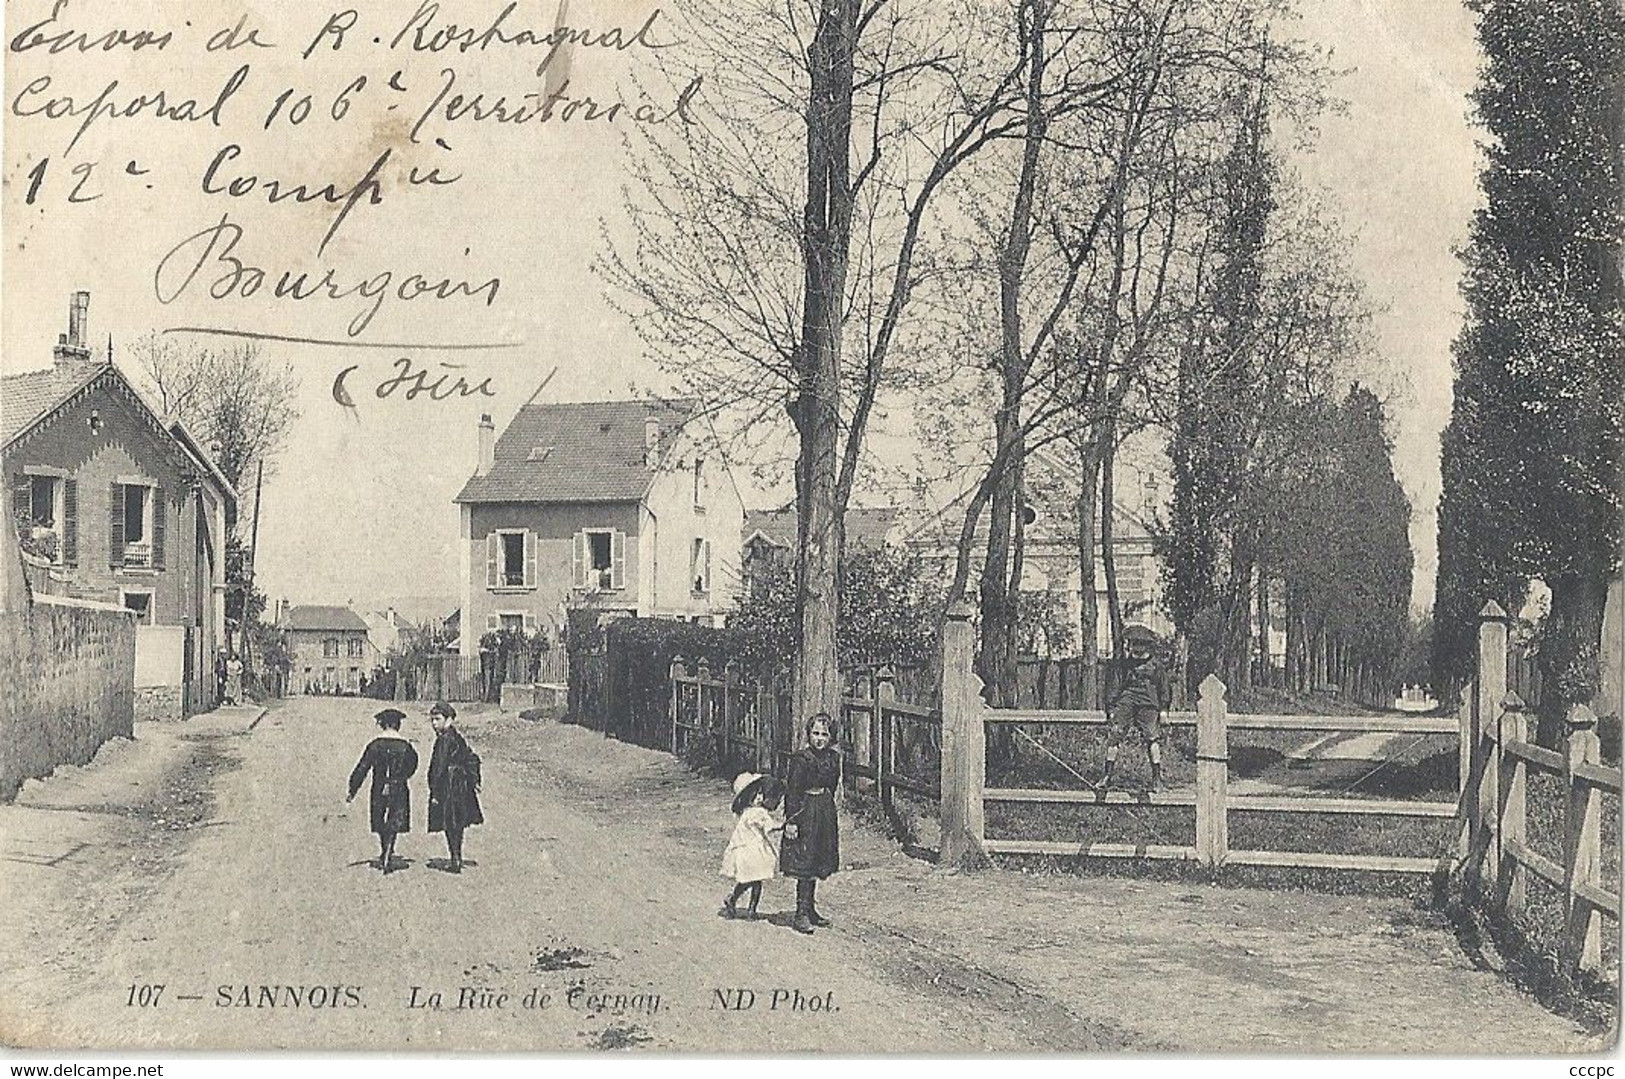 Envoi de R. Rostagnat
Caporal 106e Territorial
12e Compie
Bourgoin
(Isère)
107 — SANNOIS. La Rue de Cernay. ND Phot.
cccpc
My-Postcards.net